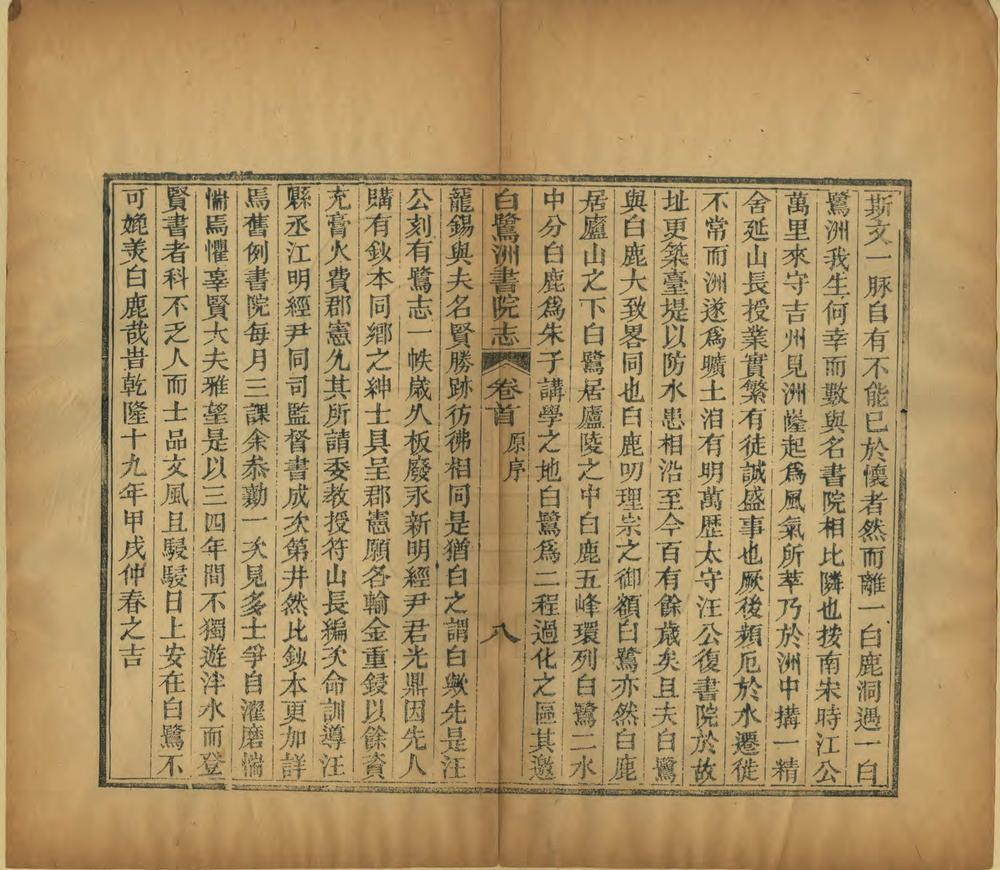 斯文一脈自有不能已於懷者然而離一白鹿洞遇一白
鷺洲我生何幸而數與名書院相比隣也按南宋時江公
萬里來守吉州見洲嶐起爲風氣所萃乃於洲中搆一精
舍延山長授業實繁有徒誠盛事也厥後頻厄於水遷徙
不常而洲遂爲曠土洎有明萬歷太守汪公復書院於故
址更築臺堤以防水患相沿至今百有餘歲矣且夫白鷺
與白鹿大致畧同也白鹿叨理宗之御額白鷺亦然白鹿
居廬山之下白鷺居廬陵之中白鹿五峰環列白鷺二水
中分白鹿爲朱子講學之地白鷺爲二程過化之區其邀
白鷺洲書院志 卷首 原序 八
龍錫與夫名賢勝跡彷彿相同是猶白之謂白歟先是汪
公刻有鷺志一帙歲久板廢永新明經尹君光鼎因先人
購有鈔本同鄉之紳士具呈郡憲願各輸金重鋟以餘資
充膏火費郡憲允其所請委教授符山長編次命訓導汪
縣丞江明經尹同司監督書成次第井然比鈔本更加詳
焉舊例書院每月三課余忝勷一次見多士爭自濯磨惴
惴焉懼辜賢大夫雅望是以三四年間不獨遊泮水而登
賢書者科不乏人而士品文風且駸駸日上安在白鷺不
可媲美白鹿哉旹乾隆十九年甲戌仲春之吉